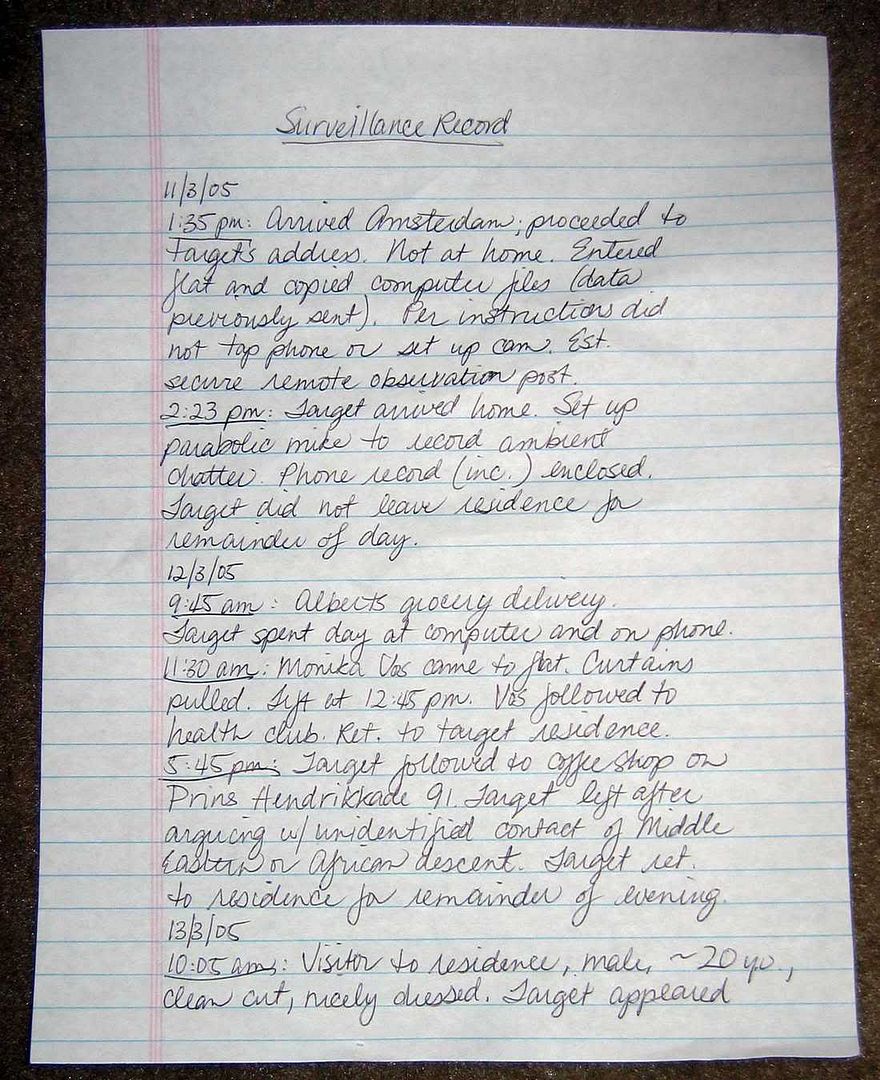 Surveillance Record
11/3/05
1:35 pm: Arrived Amsterdam; proceeded to
target's address. Not at home. Entered
flat and copied computer files (data
previously sent). Per instructions did
not tap phone or set up cam. Est.
secure remote observation post.
2:23 pm: Target arrived home. Set up
parabolic mike to record ambient
chatter. Phone record (inc.) enclosed.
Target did not leave residence for
remainder of day.
12/3/05
9:45 am: Alberts grocery delivery.
Target spent day at computer and on phone.
11:30 am: Monika Vos came to flat. Curtains
pulled. Left at 12:45 pm. Vos followed to
health club. Ret. to target residence.
5:45 pm: Target followed to coffee shop on
Prins Hendrikkade 91. Target left after
arguing w/ unidentified contact of Middle
Eastern or African descent. Target ret.
to residence for remainder of evening.
13/3/05
10:05 am: Visitor to residence, male, ~20 yo.,
clean cut, nicely dressed. Target appeared